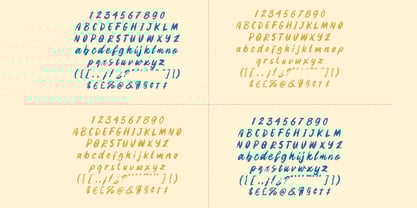 1234567890
ABCDEFGHIJKLM
NOPQRSTUVWXYZ
abcdefghijklmno
pqrstuvwxyz
1234567890
ABCDEFGHIJKLM
NOPQRSTUVWXYZ
abcdefghijklmnop
qrstuvwxyz
1234567890
ABCDEFGHIJKLM
NOPQRSTUVWXYZ
abcdefghijklmno
pqrstuvwxyz
1234567890
ABCDEFGHIJKLM
NOPQRSTUVWXYZ
abcdefghijklmno
pqrstuvwxyz